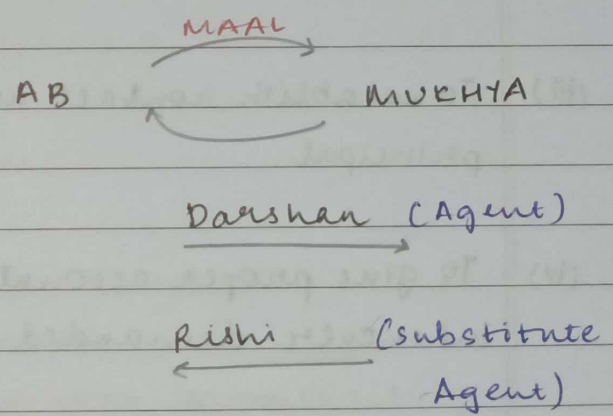 MAAL
AB MUKHYA
Darshan (Agent)
Rishi (substitute
Agent)